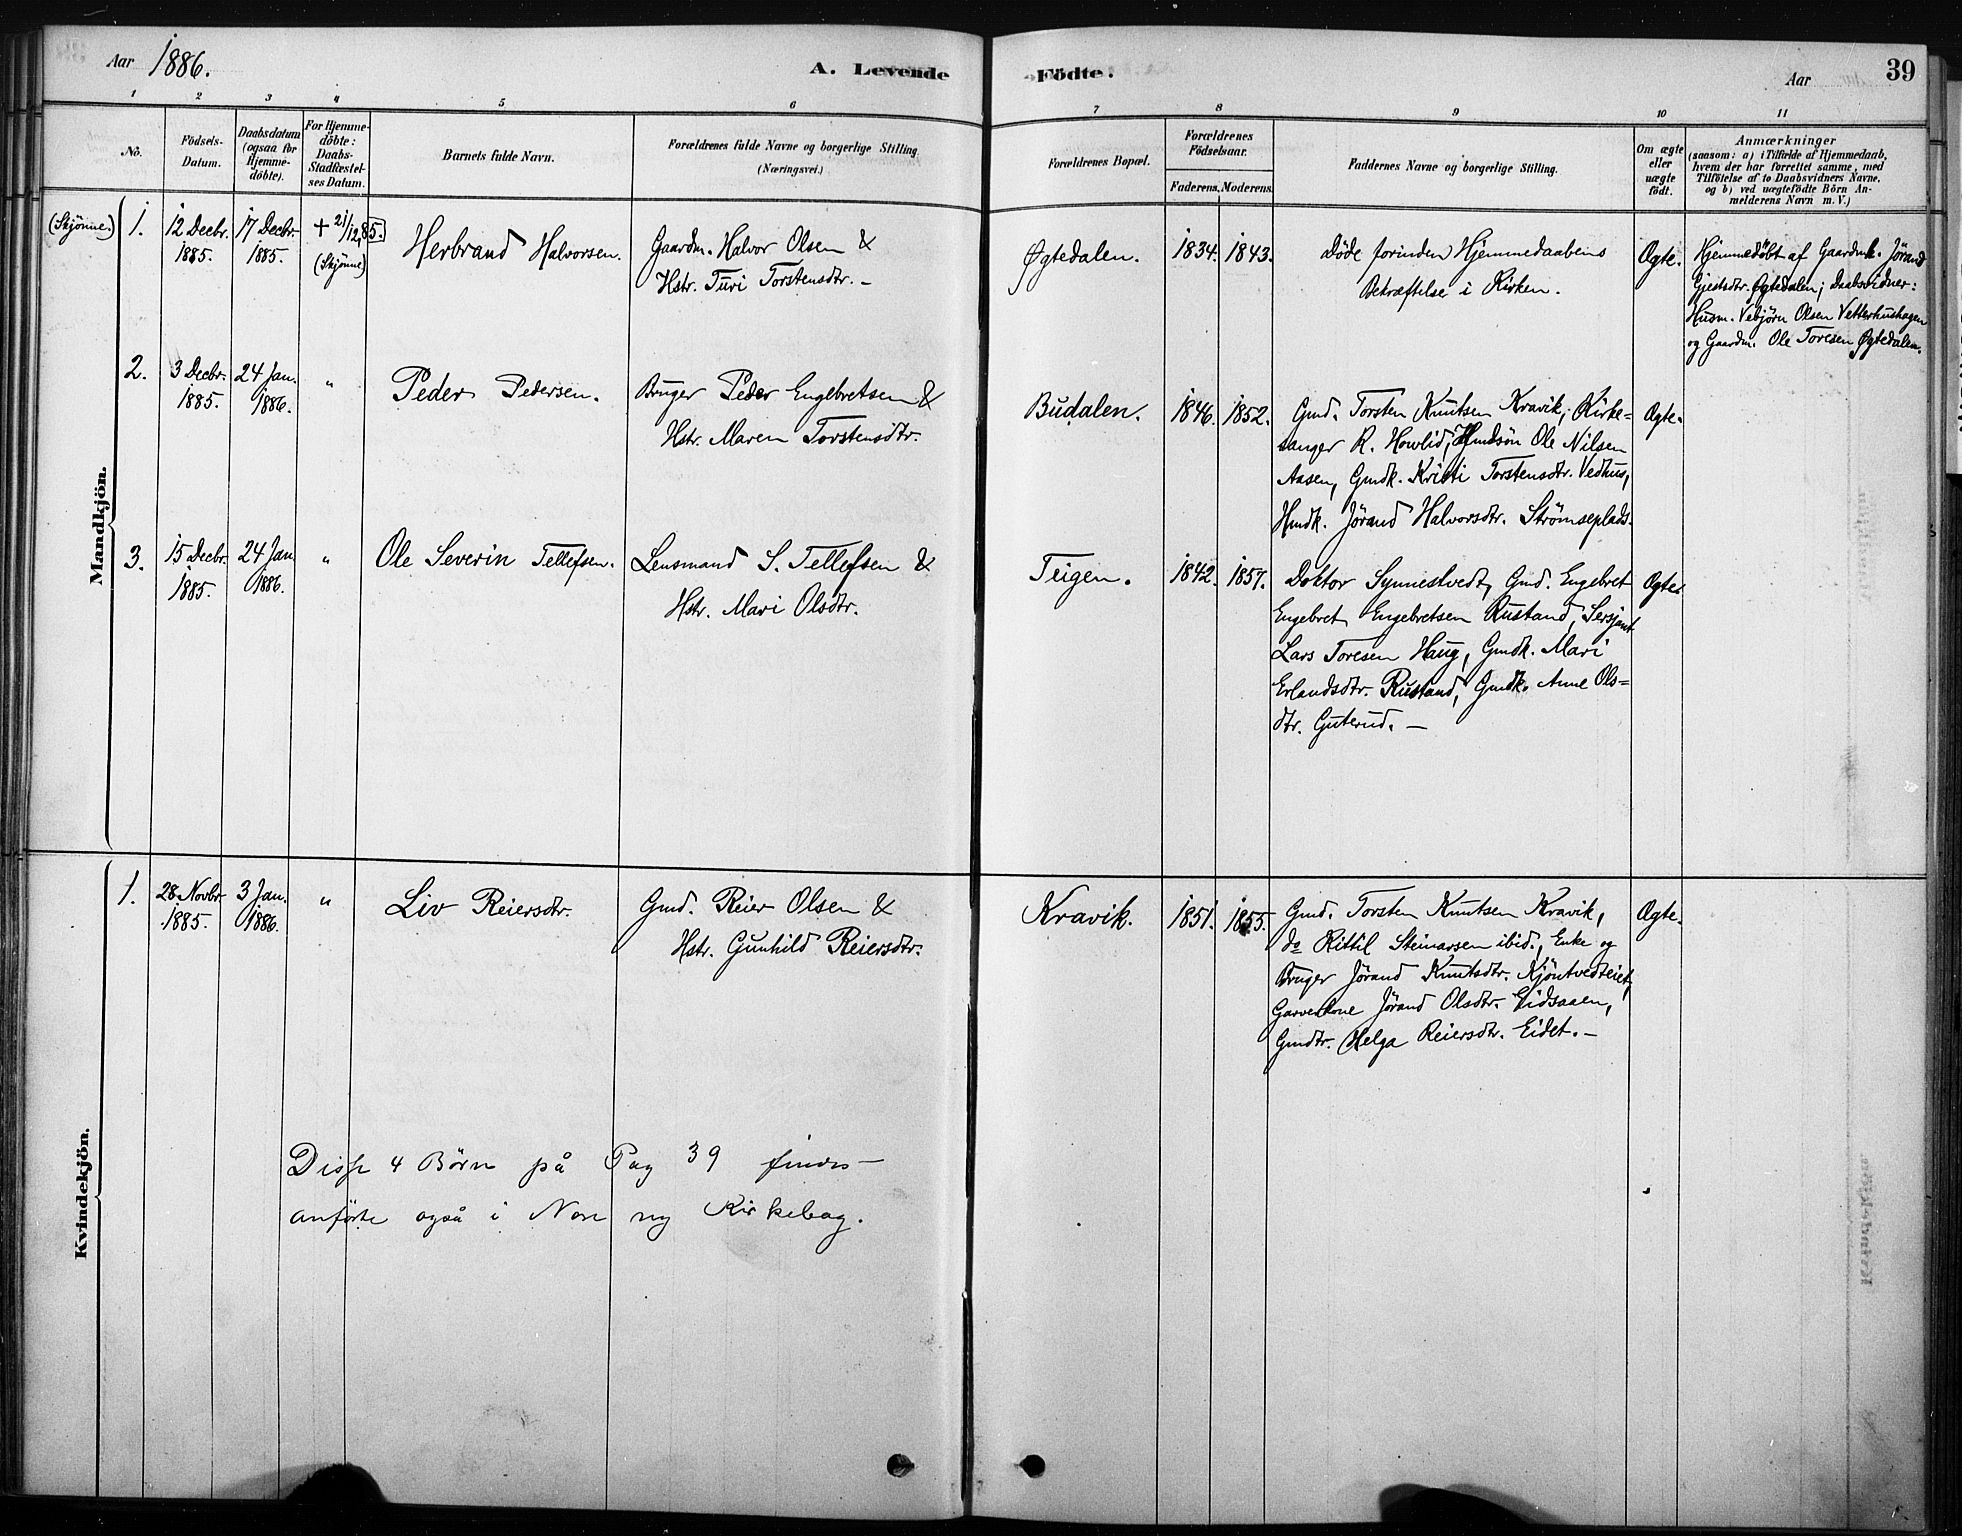 Aar 1886.
A. Levende Födte.
Aar
39
1 2 3 4 5 6 7 8 9 10 11
No.
Födsels-Datum.
Daabsdatum (ogsaa for Hjemme-döbte).
For Hjemme-döbte: Daabs-Stadfæstel-ses Datum.
Barnets fulde Navn.
Forældrenes fulde Navne og borgerlige Stilling
(Næringsvei.)
Forældrenes Bopæl.
Forældrenes Födselsaar.
Faderens. Moderens.
Faddernes Navne og borgerlige Stilling.
Om ægte eller uægte födt.
Anmærkninger
(saasom: a) i Tilfælde af Hjemmedaab,
hvem der har forrettet samme, med
Tilföielse af to Daabsvidners Navne,
og b) ved uægtefödte Börn An-
melderens Navn m. V.)
Mandkjön.
(Skjönne.) 1.
12 Decbr. 1885.
17 Decbr. 1885.
+ 21/12 85. (Skjönne)
Herbrand Halvorsen.
Gaardm. Halvor Olsen &
Hstr. Turi Torstensdtr. –
Øgtedalen.
1834. 1843.
Døde forinden Hjemmedaabens
Bekræftelse i Kirken.
Ægte.
Hjemmedöbt af Gaardmk. Jörand
Gjestsdtr. Øgtedalen; Daabsvidner:
Husm. Vebjörn Olsen Vetterhushagen
og Gaardm. Ole Toresen Øgtedalen.
2.
3 Decbr. 1885.
24 Jan. 1886.
"
Peder Pedersen.
Bruger Peder Engebretsen &
Hstr. Maren Torstensdtr.
Budalen.
1846. 1852.
Gmd. Torsten Knutsen Kravik, Kirke=
sanger R. Howlid, Hmdsön Ole Nilsen
Aasen, Gmdk. Kristi Torstensdtr. Vedhus,
Hmdk. Jörand Halvorsdtr. Strömseplads.
Ægte.
3.
15 Decbr. 1885.
24 Jan 1886.
"
Ole Severin Tellefsen.
Lensmand S. Tellefsen &
Hstr. Mari Olsdtr.
Teigen.
1842. 1857.
Doktor Synnestvedt, Gmd. Engebret
Engebret Engebretsen Rustand, Sersjant
Lars Toresen Haug, Gmdk. Mari
Erlandsdtr. Rustand, Gmdk. Anne Ols=
dtr. Guterud. –
Ægte.
Kvindekjön.
1.
28 Novbr. 1885.
3 Jan. 1886.
"
Liv Reiersdtr.
Gmd. Reier Olsen &
Hstr. Gunhild Reiersdtr.
Kravik.
1851. 1855.
Gmd. Torsten Knutsen Kravik,
do Kittil Steinarsen ibid., Enke og
Bruger Jörand Knutsdtr. Kjöntvedteiet,
Garverkone Jörand Olsdtr. Eidsaaen,
Gmdtr. Helga Reiersdtr. Eidet. –
Ægte.
Disse 4 Børn på Pag 39 findes
anførte også i Nore ny Kirkebog.